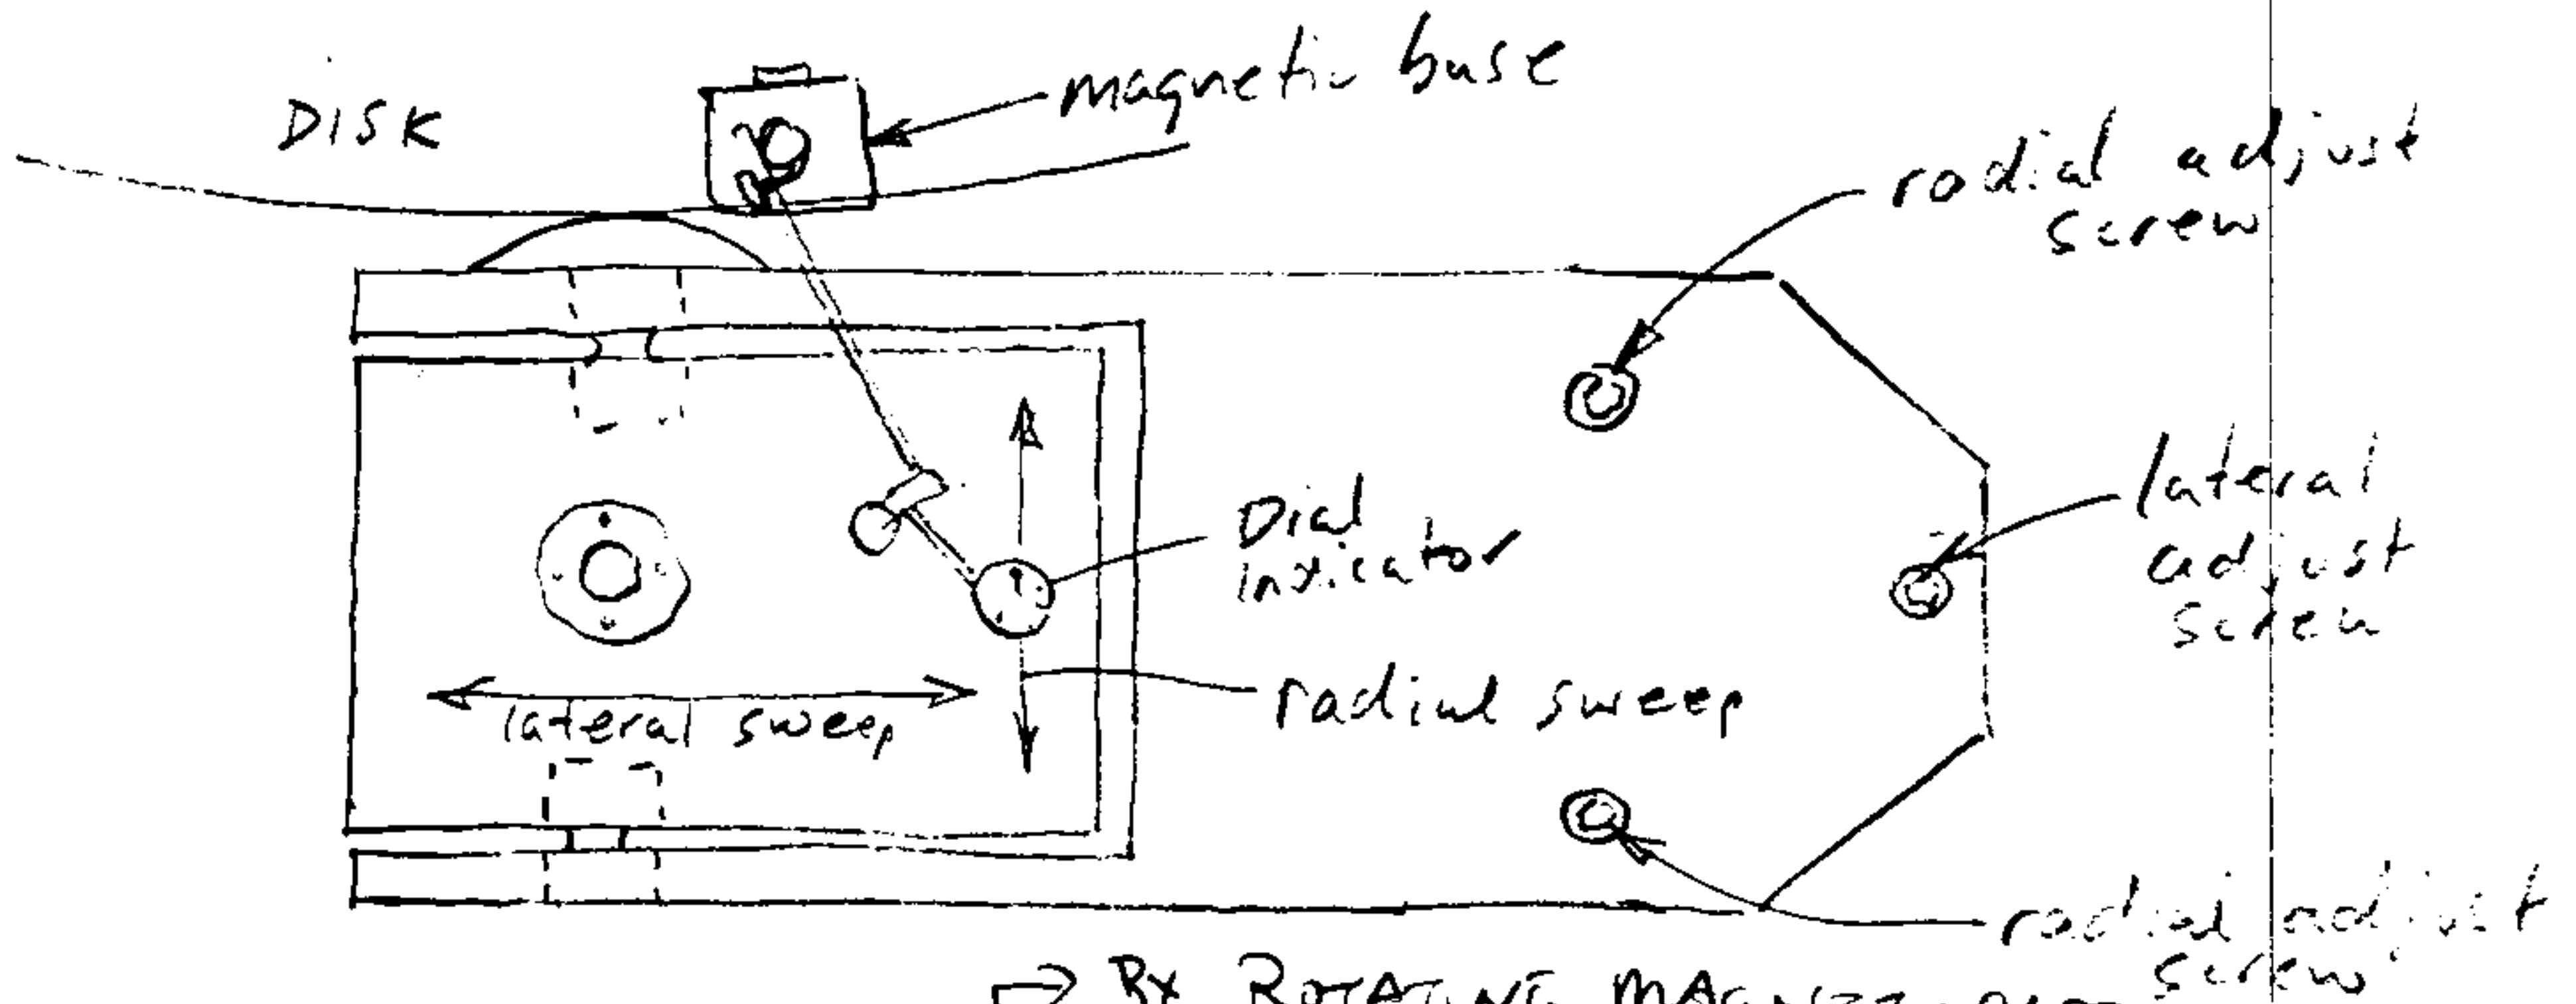 DISK
magnetic base
radial adjust
screw
lateral
adjust
screw
Dial
Indicator
radial sweep
lateral sweep
radial adjust
screw
→ BY ROTATING